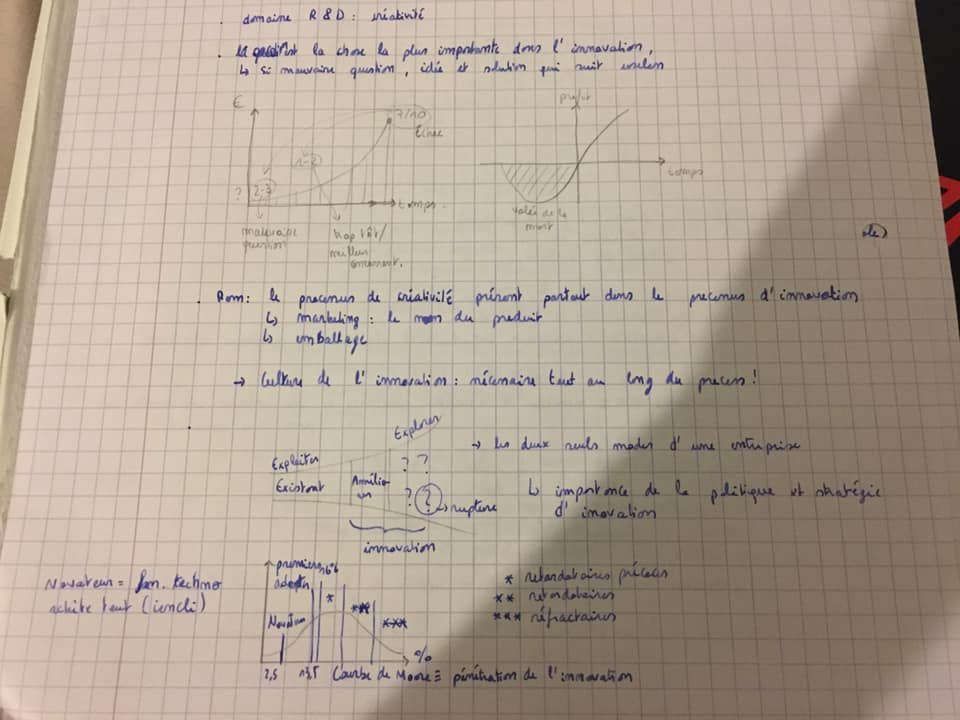 . domaine R & D : créativité
. la question est la chose la plus importante dans l'innovation,
↳ si mauvaise question, idée et solution qui suit
€
7/10
Echec
1-2
? 2,3
temps
mauvaise
question
trop tôt/
milieu
profit
temps
vallée de la
mort
. Rem : le processus de créativité présent partout dans le processus d'innovation
↳ marketing : le nom du produit
↳ emballage
→ Culture de l'innovation : nécessaire tout au long du process !
Explorer
Exploiter
Existant
? ?
? ? → rupture
innovation
→ les deux seuls modes d'une entreprise
↳ importance de la politique et stratégie
d'inovation
Novateur = fan techno
achète tout
premiers
Novateur
* retardataires précoces
** retardataires
*** réfractaires
*
**
***
%
2,5 13,5 Courbe de Moore = pénétration de l'innovation